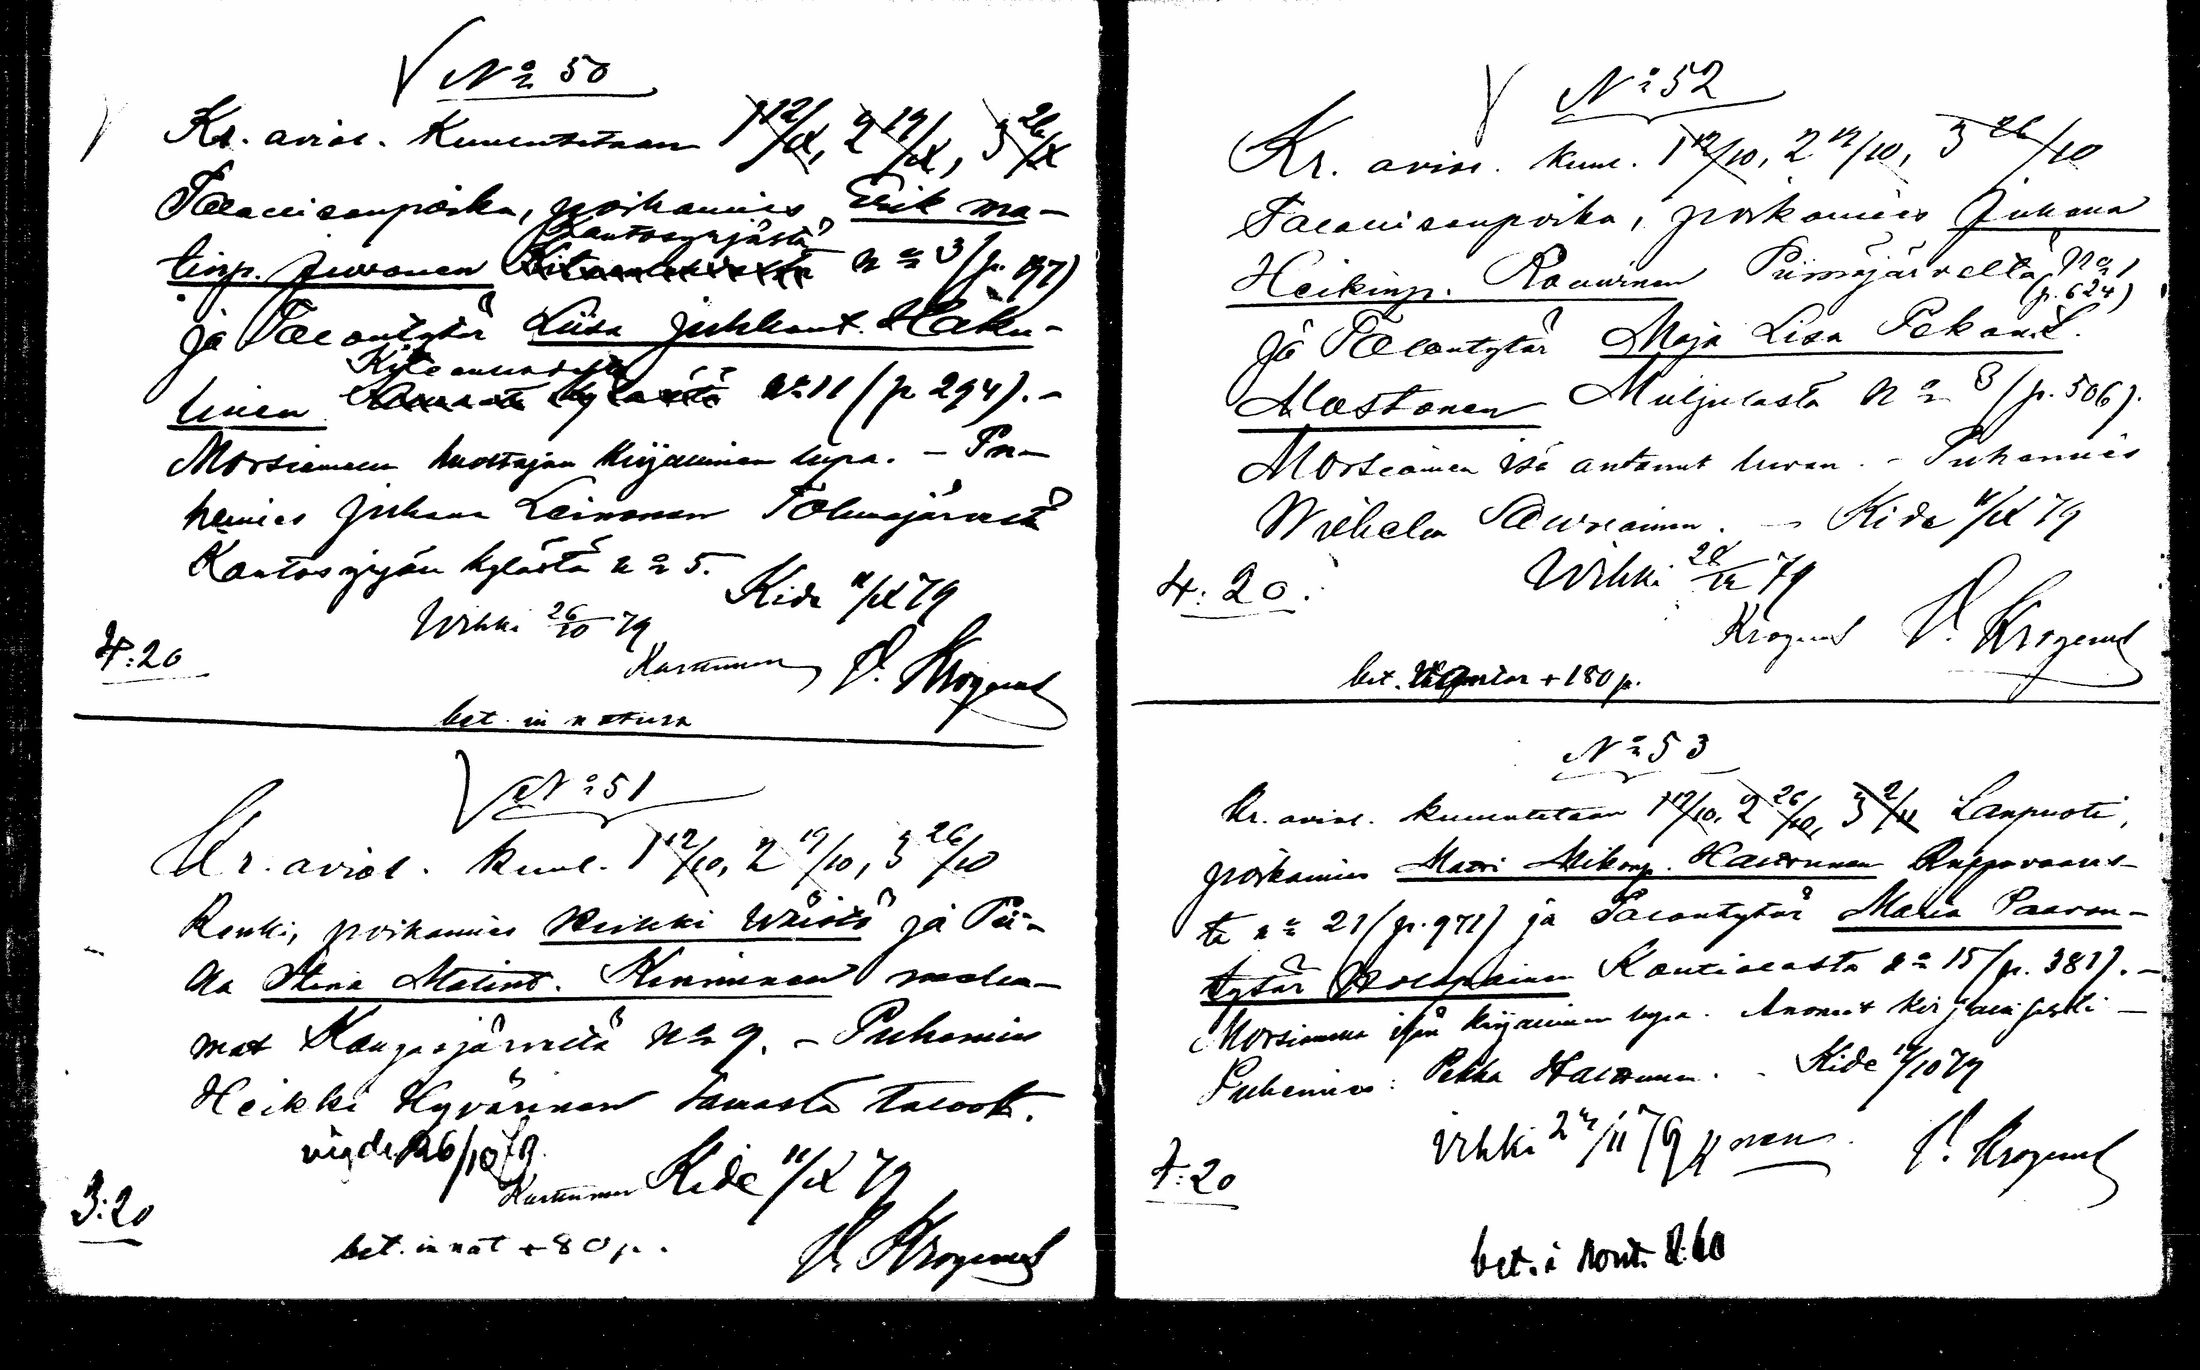 No 50
Kr. aviol. kuulutetaan 1 12/X, 2 19/X, 3 26/X
Talollisenpoika, poikamies Erik Ma-
Kantosyrjästä
tinp. Juvonen No 3 (p. 197)
ja Talontytär Liisa Juhhant. Haku-
Kiteenlahdesta
linen No 11 (p 294). -
Morsiamen huoltajan kirjallinen lupa. - Pu-
hemies Juhana Leinonen Tohmajärvestä
Kantosyrjän kylästä No 5.
Kide 11/X 79
Vihki 26/10 79
4:20
Karttunen
P. Krogerus
bet. in natura
No 51
Kr. aviol. kuul. 1 12/10, 2 19/10, 3 26/10
Renki, poikamies Heikki Väistö ja Pii-
ka Stina Matint. Kinnunen molem-
mat Kangasjärveltä No 9. - Puhemies
Heikki Hyvärinen samasta talosta.
vigde 26/10 79.
Karttunen Kide 11/X 79
3:20
bet. in nat + 80 p.
P. Krogerus
No 52
Kr. aviol. kuul. 1 12/10, 2 19/10, 3 26/10
Talollisenpoika, poikamies Juhana
Heikinp. Rouvinen Piimäjärveltä No 1
(p. 624)
ja Talontytär Maja Lisa Pekant.
Mustonen Muljulasta No 3 (p. 506).
Morsiamen isä antanut luvan. - Puhemies
Wilhelm Sauvainen. - Kide 11/X 79
Vihki 79
4:20.
Krogerus P. Krogerus
bet. + 180 p.
No 53
Kr. aviol. kuulutetaan 1 19/10, 2 26/10, 3 2/11 Lampuoti,
poikamies Matti Mikonp. Halttunen Ruppovaaras-
ta No 21 (p. 971) ja Talontytär Maria Paavon-
tytär Holopainen Kantialasta No 15 (p. 381). -
Morsiamen isän kirjallinen lupa. Anoneet kirjallisesti -
Puhemies: Pekka Halttunen. - Kide 79
Vihki 79
P. Krogerus
4:20
bet. i kont. 2:60